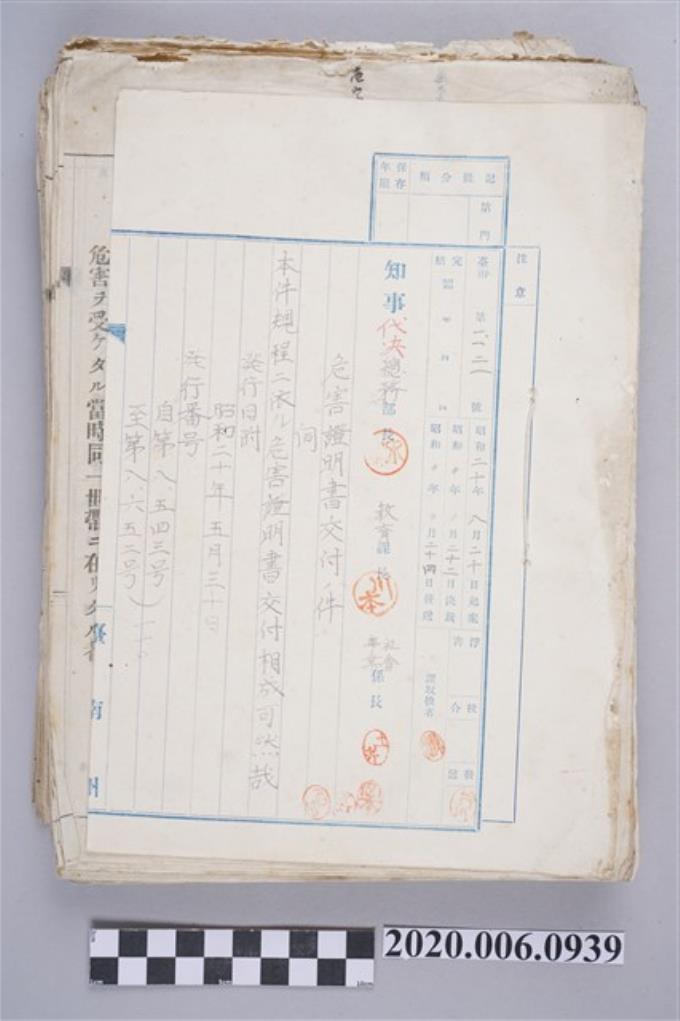 注意
記録分類
保存年限
第 門
臺甲 第一、一二一 號
昭和二十年 八月二十日起案
完結
昭和 〃年 〃月二十二日決裁
昭和 〃年 〃月二十四日發送
淨書
校合
發送
知事 代決 總務部長
教育課長
社會事業係長
危害證明書交付ノ件
伺
本件規程ニ依ル危害證明書交付相成可然哉
發行日附
昭和二十年五月三十日
發行番号
自第八、五四三号
至第八、六五二号
南州
危害ヲ受ケタル當時同一世帶ニ在リ
2020.006.0939